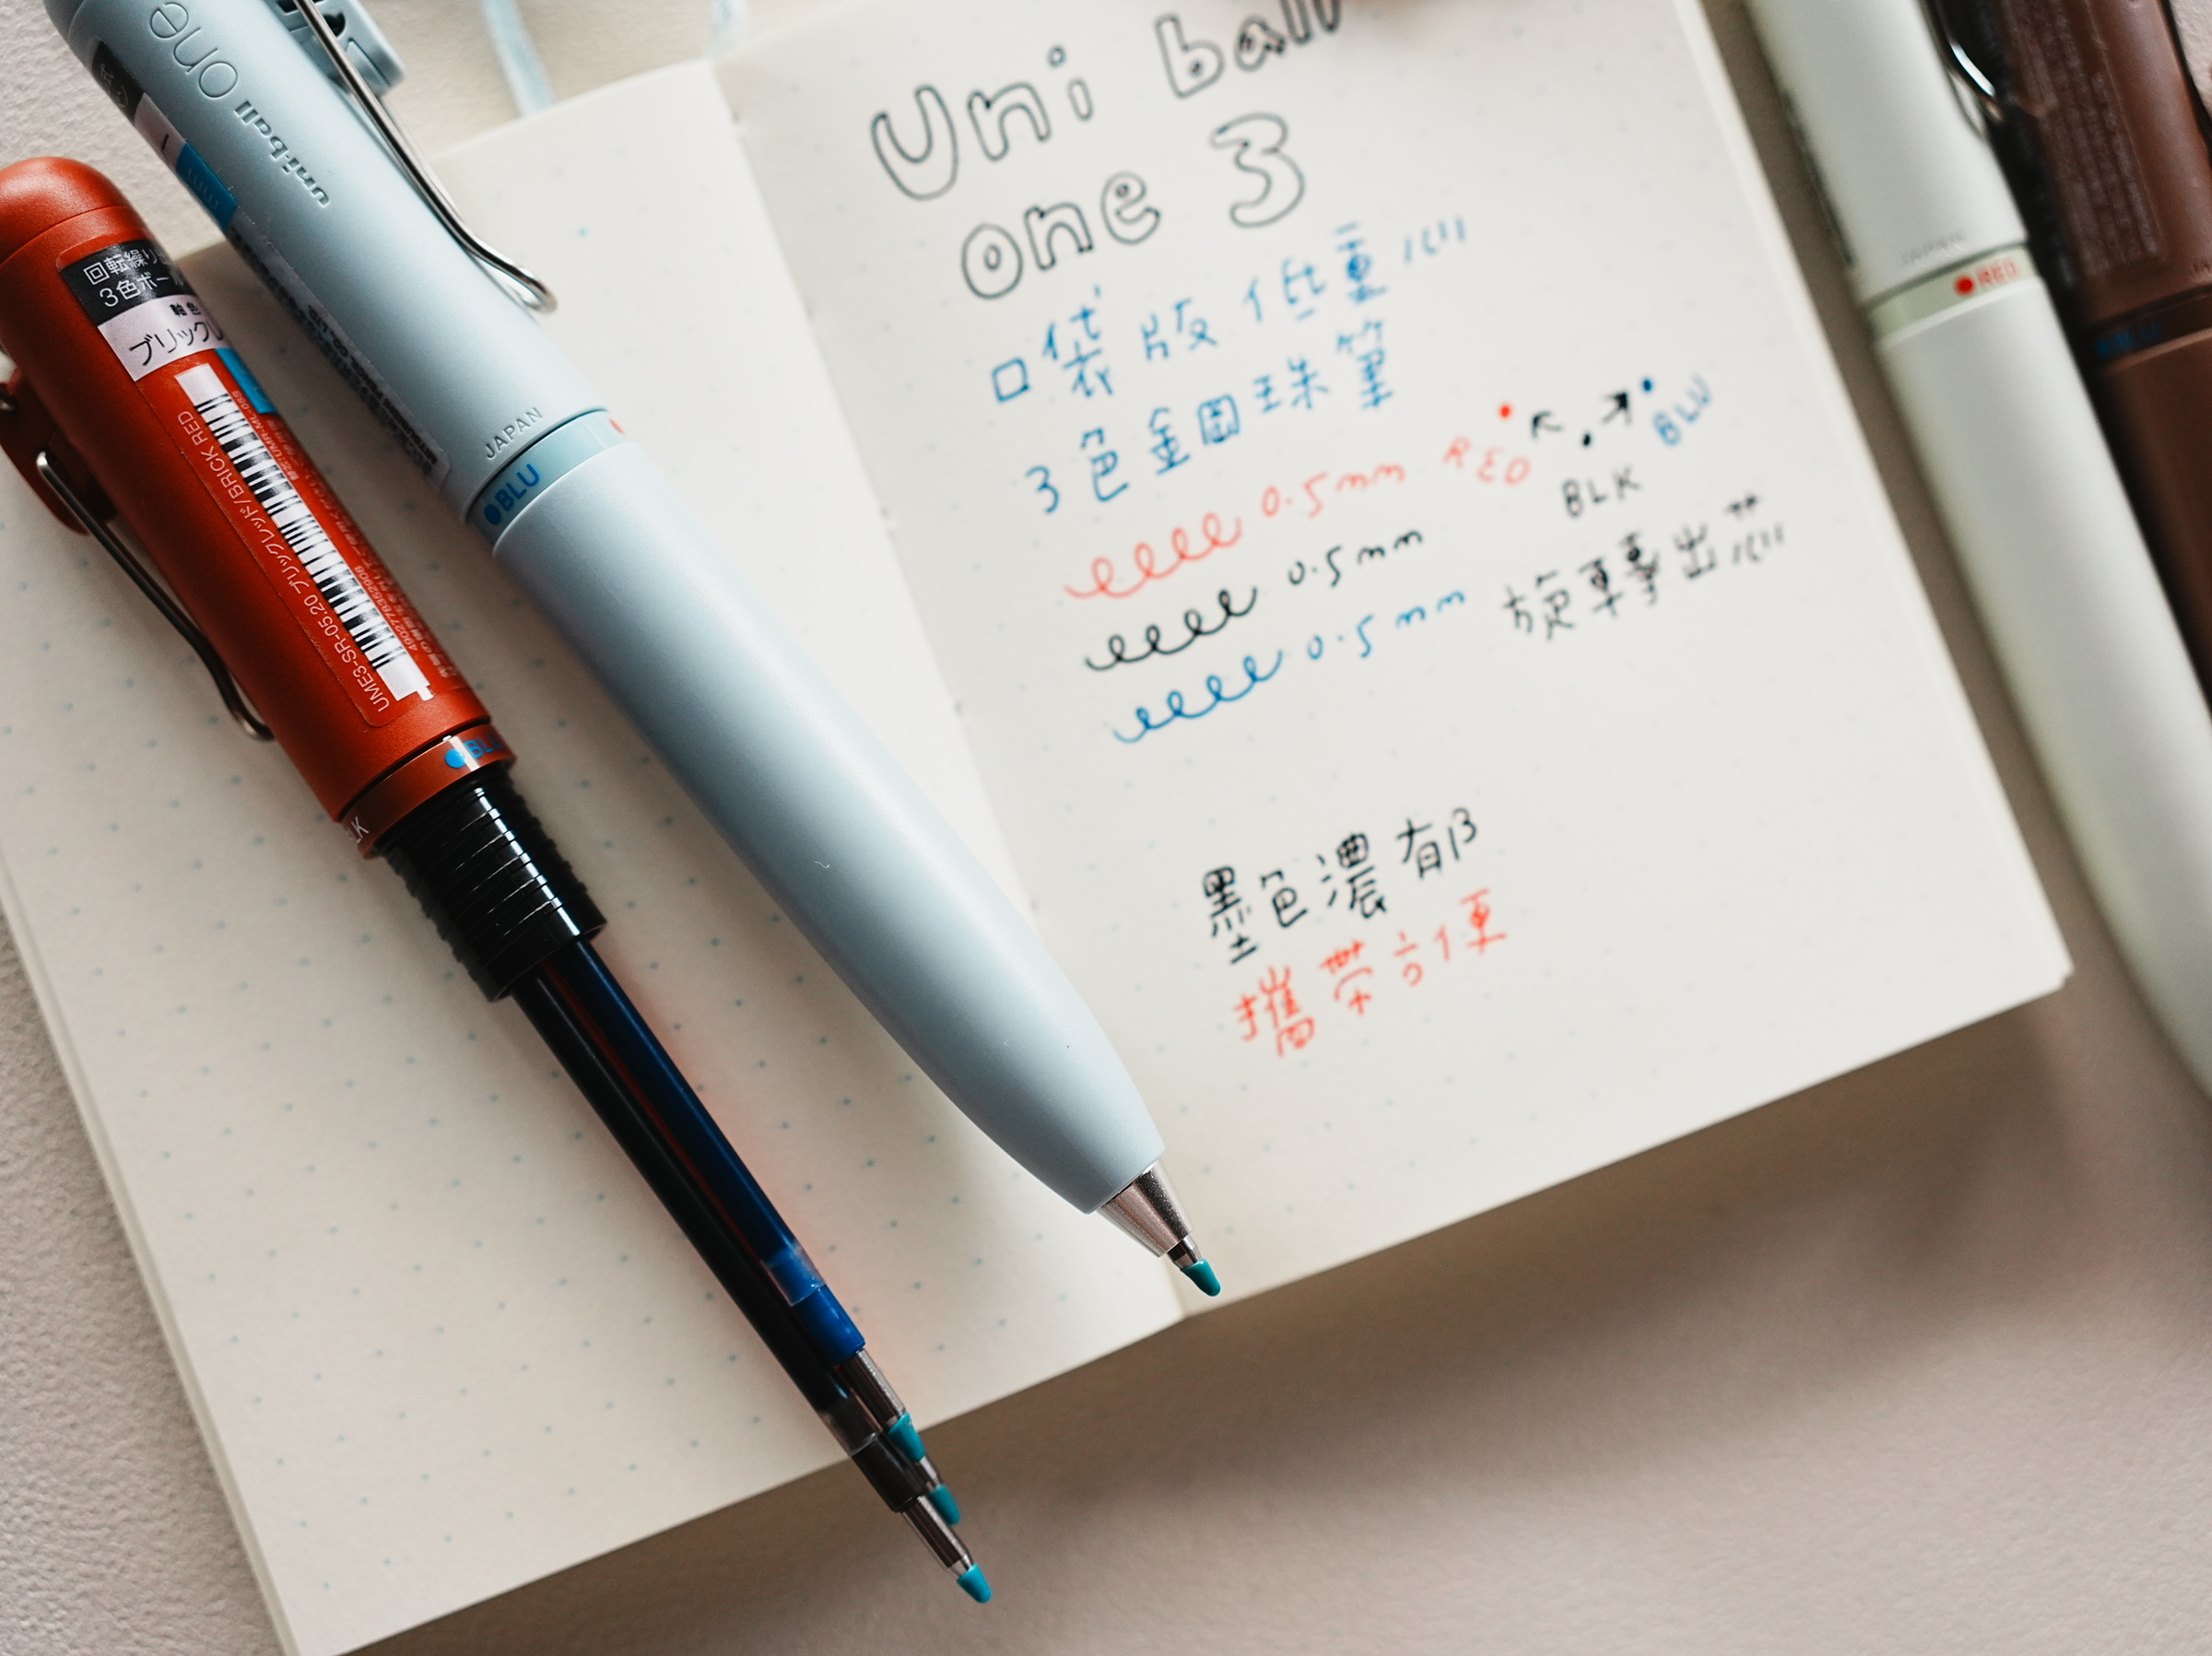 Uni ball
one 3
口袋版低重心
3色鋼珠筆
0.5mm RED BLK BLU
0.5mm
0.5mm 旋轉出芯
墨色濃郁
攜帶方便
uni-ball one
JAPAN
BLU
回転繰り
3色ボール
軸色
ブリックレ
UME3-SR-05.20 ブリックレッド/BRICK RED
BLU
LK
JAPAN
RED